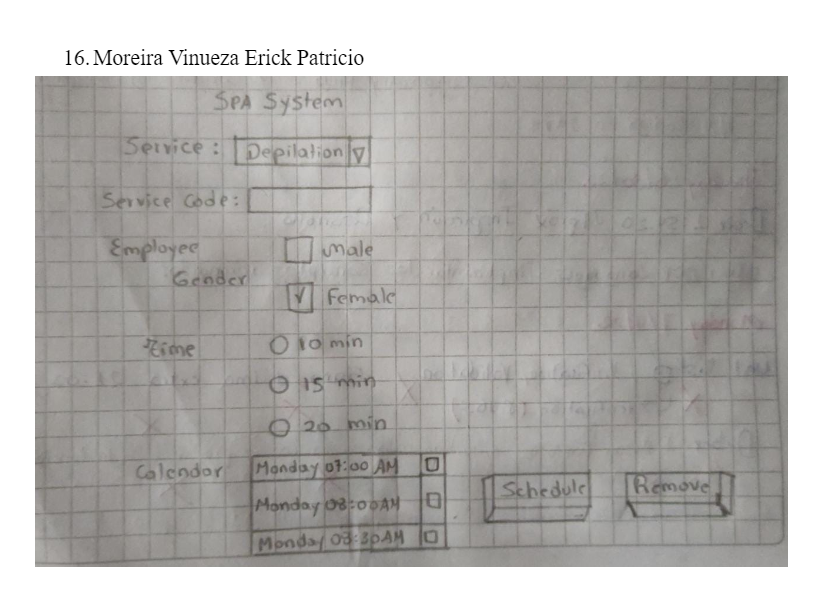 16. Moreira Vinueza Erick Patricio
SPA System
Service: Depilation
Service Code:
Employee Gender
Male
Female
Time
10 min
15 min
20 min
Calendar
Monday 07:00 AM
Monday 08:00 AM
Monday 08:30 AM
Schedule
Remove